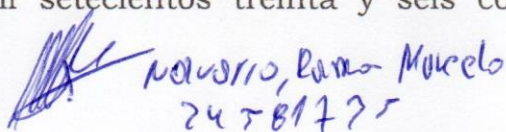 setecientos treinta y seis
Navarro, Ramon Marcelo
24581735